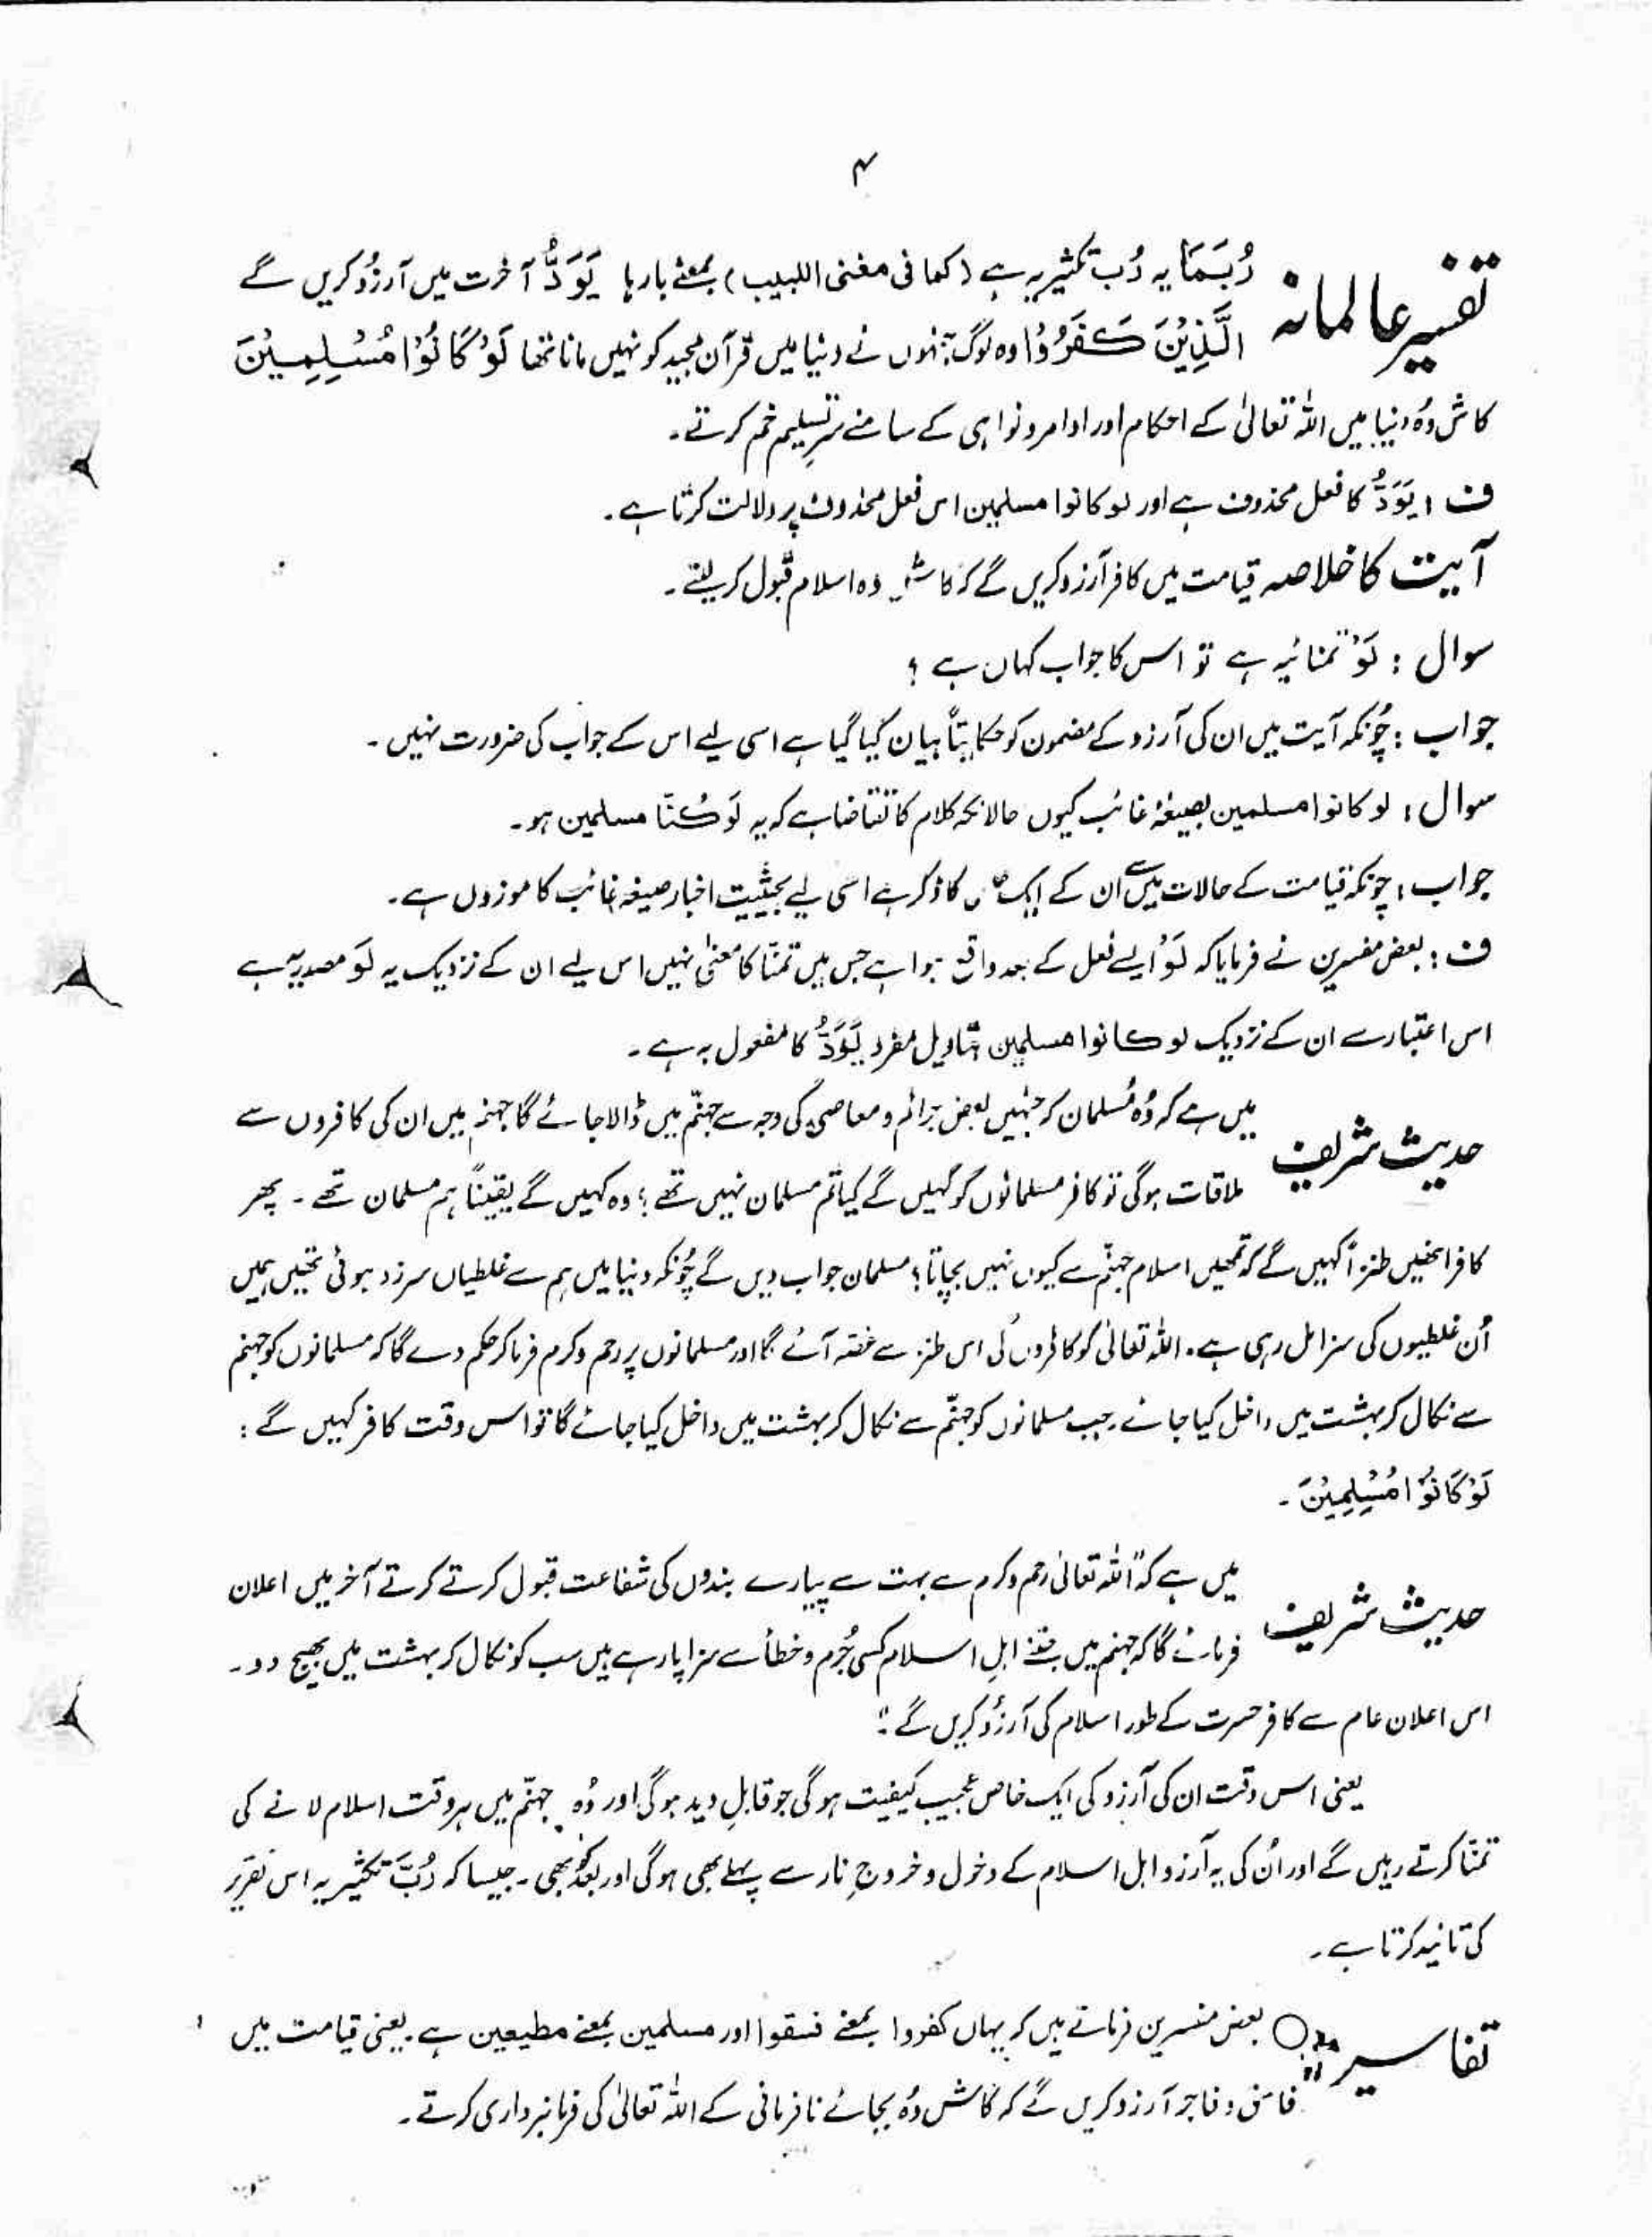 ۴
تفسیر عالمانہ رُبَمَا یہ رُب تکثیریہ ہے (کما فی مغنی اللبیب) بمعنے بارہا یَوَدُّ آخرت میں آرزُو کریں گے
الَّذِیْنَ کَفَرُوْا وہ لوگ جنہوں نے دنیا میں قرآن مجید کو نہیں مانا تھا لَوْ کَانُوْا مُسْلِمِیْنَ
کاش وُہ دنیا میں اللہ تعالیٰ کے احکام اور اوامر و نواہی کے سامنے سرِ تسلیم خم کرتے۔
ف : یَوَدُّ کا فعل محذوف ہے اور لو کانوا مسلمین اس فعل محذوف پر دلالت کرتا ہے۔
آیت کا خلاصہ قیامت میں کافر آرزو کریں گے کہ کاش وہ اسلام قبول کر لیتے۔
سوال : لَوْ تمنائیہ ہے تو اس کا جواب کہاں ہے ؟
جواب : چُونکہ آیت میں ان کی آرزو کے مضمون کو حکایتاً بیان کیا گیا ہے اسی لیے اس کے جواب کی ضرورت نہیں ۔
سوال : لو کانوا مسلمین بصیغۂ غائب کیوں حالانکہ کلام کا تقاضا ہے کہ یہ لَوْ کُنَّا مسلمین ہو۔
جواب : چونکہ قیامت کے حالات میں سے ان کے ایک کا ذکر ہے اسی لیے بحیثیت اخبار صیغہ غائب کا موزوں ہے۔
ف : بعض مفسرین نے فرمایا کہ لَوْ ایسے فعل کے بعد واقع ہوا ہے جس میں تمنّا کا معنیٰ نہیں اس لیے ان کے نزدیک یہ لَوْ مصدریہ ہے
اس اعتبار سے ان کے نزدیک لو کانوا مسلمین بتاویل مفرد یَوَدُّ کا مفعول بہ ہے ۔
حدیث شریف میں ہے کہ وُہ مُسلمان کہ جنہیں بعض جرائم و معاصی کی وجہ سے جہنّم میں ڈالا جائے گا جہنم میں ان کی کافروں سے
ملاقات ہوگی تو کافر مسلمانوں کو کہیں گے کیا تم مسلمان نہیں تھے ؟ وہ کہیں گے یقیناً ہم مسلمان تھے ۔ پھر
کافر انھیں طنزاً کہیں گے کہ تمھیں اسلام جہنّم سے کیوں نہیں بچاتا؟ مسلمان جواب دیں گے چُونکہ دنیا میں ہم سے غلطیاں سرزد ہوئی تھیں ہمیں
اُن غلطیوں کی سزا مل رہی ہے۔ اللہ تعالیٰ کو کافروں کی اس طنز سے غصہ آئے گا اور مسلمانوں پر رحم و کرم فرما کر حکم دے گا کہ مسلمانوں کو جہنم
سے نکال کر بہشت میں داخل کیا جائے۔ جب مسلمانوں کو جہنّم سے نکال کر بہشت میں داخل کیا جائے گا تو اس وقت کافر کہیں گے :
لَوْ کَانُوْا مُسْلِمِیْنَ ۔
حدیث شریف میں ہے کہ "اللہ تعالیٰ رحم و کرم سے بہت سے پیارے بندوں کی شفاعت قبول کرتے کرتے آخر میں اعلان
فرمائے گا کہ جہنم میں جتنے اہلِ اسلام کسی جُرم و خطأ سے سزا پا رہے ہیں سب کو نکال کر بہشت میں بھیج دو۔
اس اعلان عام سے کافر حسرت کے طور اسلام کی آرزُو کریں گے"
یعنی اس وقت ان کی آرزو کی ایک خاص عجیب کیفیت ہوگی جو قابلِ دید ہوگی اور وُہ جہنّم میں ہر وقت اسلام لانے کی
تمنّا کرتے رہیں گے اور اُن کی یہ آرزو اہل اسلام کے دخول و خروجِ نار سے پہلے بھی ہوگی اور بعد کو بھی ۔ جیسا کہ رُبَّ تکثیریہ اس تقریر
کی تائید کرتا ہے ۔
تفاسیر بعض مفسرین فرماتے ہیں کہ یہاں کفروا بمعنے فسقوا اور مسلمین بمعنے مطیعین ہے یعنی قیامت میں
فاسق و فاجر آرزو کریں گے کہ کاش وُہ بجائے نافرمانی کے اللہ تعالیٰ کی فرمانبرداری کرتے ۔